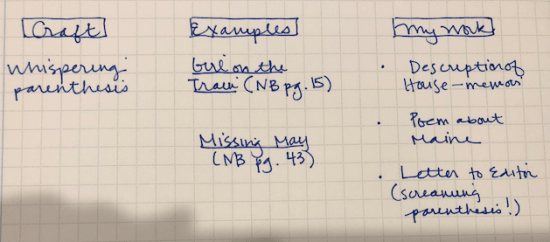 Craft
Examples
My Work
Whispering parenthesis
Girl on the
Train (NB pg. 15)
Missing May
(NB pg. 43)
• Description of
House – memoir
• Poem about
Maine
• Letter to Editor
(screaming
parenthesis!)